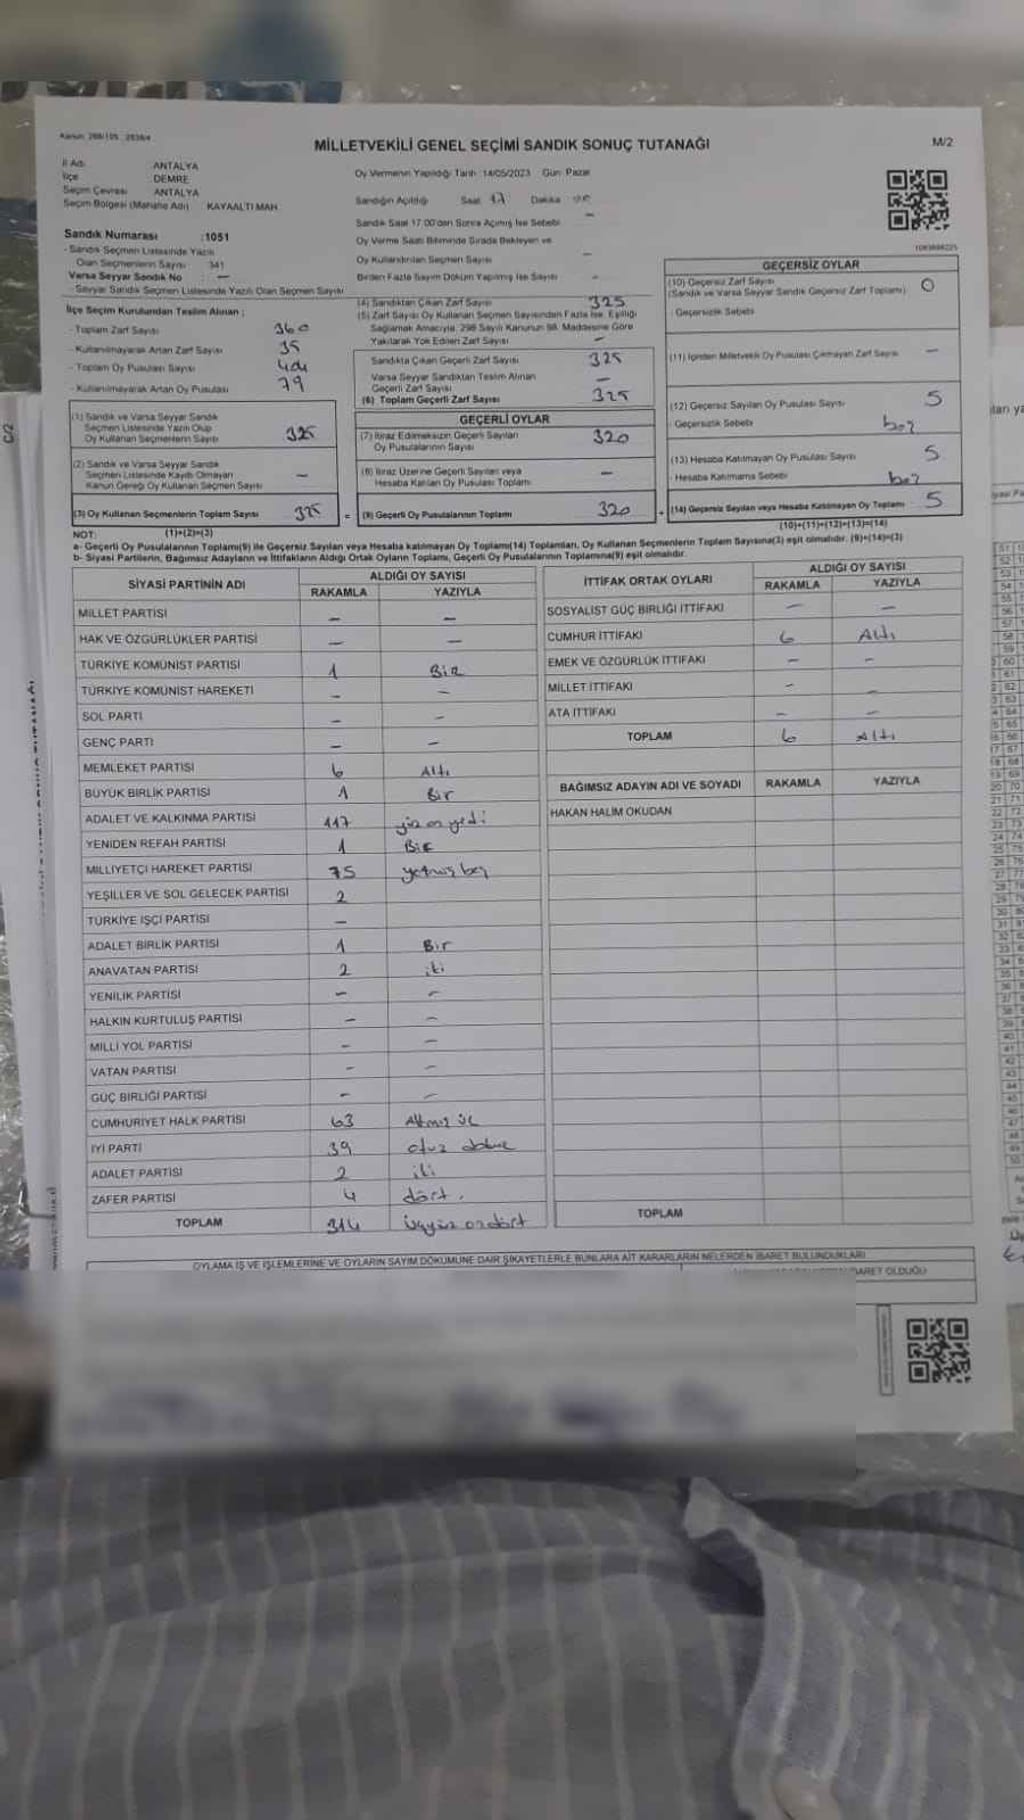 MİLLETVEKİLİ GENEL SEÇİMİ SANDIK SONUÇ TUTANAĞI
M/2
İl Adı ANTALYA
İlçe DEMRE
Seçim Çevresi ANTALYA
Seçim Bölgesi (Mahalle Adı) KAYAALTI MAH.
Oy Vermenin Yapıldığı Tarih : 14/05/2023 Gün: Pazar
Sandığın Açıldığı Saat 17 Dakika
Sandık Saat 17.00'den Sonra Açılmış İse Sebebi -
Oy Verme Saati Bitiminde Sırada Bekleyen ve
Oy Kullandırılan Seçmen Sayısı -
Birden Fazla Sayım Döküm Yapılmış İse Sayısı -
Sandık Numarası :1051
- Sandık Seçmen Listesinde Yazılı
Olan Seçmenlerin Sayısı 341
Varsa Seyyar Sandık No : -
- Seyyar Sandık Seçmen Listesinde Yazılı Olan Seçmen Sayısı
İlçe Seçim Kurulundan Teslim Alınan ;
- Toplam Zarf Sayısı 360
- Kullanılmayarak Artan Zarf Sayısı 35
- Toplam Oy Pusulası Sayısı 404
- Kullanılmayarak Artan Oy Pusulası 79
(1) Sandık ve Varsa Seyyar Sandık
Seçmen Listesinde Yazılı Olup
Oy Kullanan Seçmenlerin Sayısı 325
(2) Sandık ve Varsa Seyyar Sandık
Seçmen Listesinde Kayıtlı Olmayan
Kanun Gereği Oy Kullanan Seçmen Sayısı -
(3) Oy Kullanan Seçmenlerin Toplam Sayısı 325
(1)+(2)=(3)
(4) Sandıktan Çıkan Zarf Sayısı 325
(5) Zarf Sayısı Oy Kullanan Seçmen Sayısından Fazla İse, Eşitliği
Sağlamak Amacıyla, 298 Sayılı Kanunun 98. Maddesine Göre
Yakılarak Yok Edilen Zarf Sayısı -
Sandıkta Çıkan Geçerli Zarf Sayısı 325
Varsa Seyyar Sandıktan Teslim Alınan
Geçerli Zarf Sayısı -
(6) Toplam Geçerli Zarf Sayısı 325
GEÇERLİ OYLAR
(7) İtiraz Edilmeksizin Geçerli Sayılan
Oy Pusulalarının Sayısı 320
(8) İtiraz Üzerine Geçerli Sayılan veya
Hesaba Katılan Oy Pusulası Toplamı -
= (9) Geçerli Oy Pusulalarının Toplamı 320
GEÇERSİZ OYLAR
(10) Geçersiz Zarf Sayısı 0
(Sandık ve Varsa Seyyar Sandık Geçersiz Zarf Toplamı)
- Geçersizlik Sebebi
(11) İçinden Milletvekili Oy Pusulası Çıkmayan Zarf Sayısı -
(12) Geçersiz Sayılan Oy Pusulası Sayısı 5
- Geçersizlik Sebebi boş
(13) Hesaba Katılmayan Oy Pusulası Sayısı 5
- Hesaba Katılmama Sebebi boş
+ (14) Geçersiz Sayılan veya Hesaba Katılmayan Oy Toplamı 5
(10)+(11)+(12)+(13)=(14)
NOT:
a- Geçerli Oy Pusulalarının Toplamı(9) ile Geçersiz Sayılan veya Hesaba katılmayan Oy Toplamı(14) Toplamları, Oy Kullanan Seçmenlerin Toplam Sayısına(3) eşit olmalıdır. (9)+(14)=(3)
b- Siyasi Partilerin, Bağımsız Adayların ve İttifakların Aldığı Ortak Oyların Toplamı, Geçerli Oy Pusulalarının Toplamına(9) eşit olmalıdır.
SİYASİ PARTİNİN ADI ALDIĞI OY SAYISI
RAKAMLA YAZIYLA
MİLLET PARTİSİ - -
HAK VE ÖZGÜRLÜKLER PARTİSİ - -
TÜRKİYE KOMÜNİST PARTİSİ 1 Bir
TÜRKİYE KOMÜNİST HAREKETİ - -
SOL PARTİ - -
GENÇ PARTİ - -
MEMLEKET PARTİSİ 6 Altı
BÜYÜK BİRLİK PARTİSİ 1 Bir
ADALET VE KALKINMA PARTİSİ 117 yüz on yedi
YENİDEN REFAH PARTİSİ 1 Bir
MİLLİYETÇİ HAREKET PARTİSİ 75 yetmiş beş
YEŞİLLER VE SOL GELECEK PARTİSİ 2
TÜRKİYE İŞÇİ PARTİSİ -
ADALET BİRLİK PARTİSİ 1 Bir
ANAVATAN PARTİSİ 2 iki
YENİLİK PARTİSİ - -
HALKIN KURTULUŞ PARTİSİ - -
MİLLİ YOL PARTİSİ - -
VATAN PARTİSİ - -
GÜÇ BİRLİĞİ PARTİSİ - -
CUMHURİYET HALK PARTİSİ 63 Altmış üç
İYİ PARTİ 39 otuz dokuz
ADALET PARTİSİ 2 iki
ZAFER PARTİSİ 4 dört.
TOPLAM 314 üçyüz ondört
İTTİFAK ORTAK OYLARI ALDIĞI OY SAYISI
RAKAMLA YAZIYLA
SOSYALİST GÜÇ BİRLİĞİ İTTİFAKI - -
CUMHUR İTTİFAKI 6 Altı
EMEK VE ÖZGÜRLÜK İTTİFAKI - -
MİLLET İTTİFAKI - -
ATA İTTİFAKI - -
TOPLAM 6 Altı
BAĞIMSIZ ADAYIN ADI VE SOYADI RAKAMLA YAZIYLA
HAKAN HALİM OKUDAN
TOPLAM
OYLAMA İŞ VE İŞLEMLERİNE VE OYLARIN SAYIM DÖKÜMÜNE DAİR ŞİKAYETLERLE BUNLARA AİT KARARLARIN NELERDEN İBARET BULUNDUKLARI